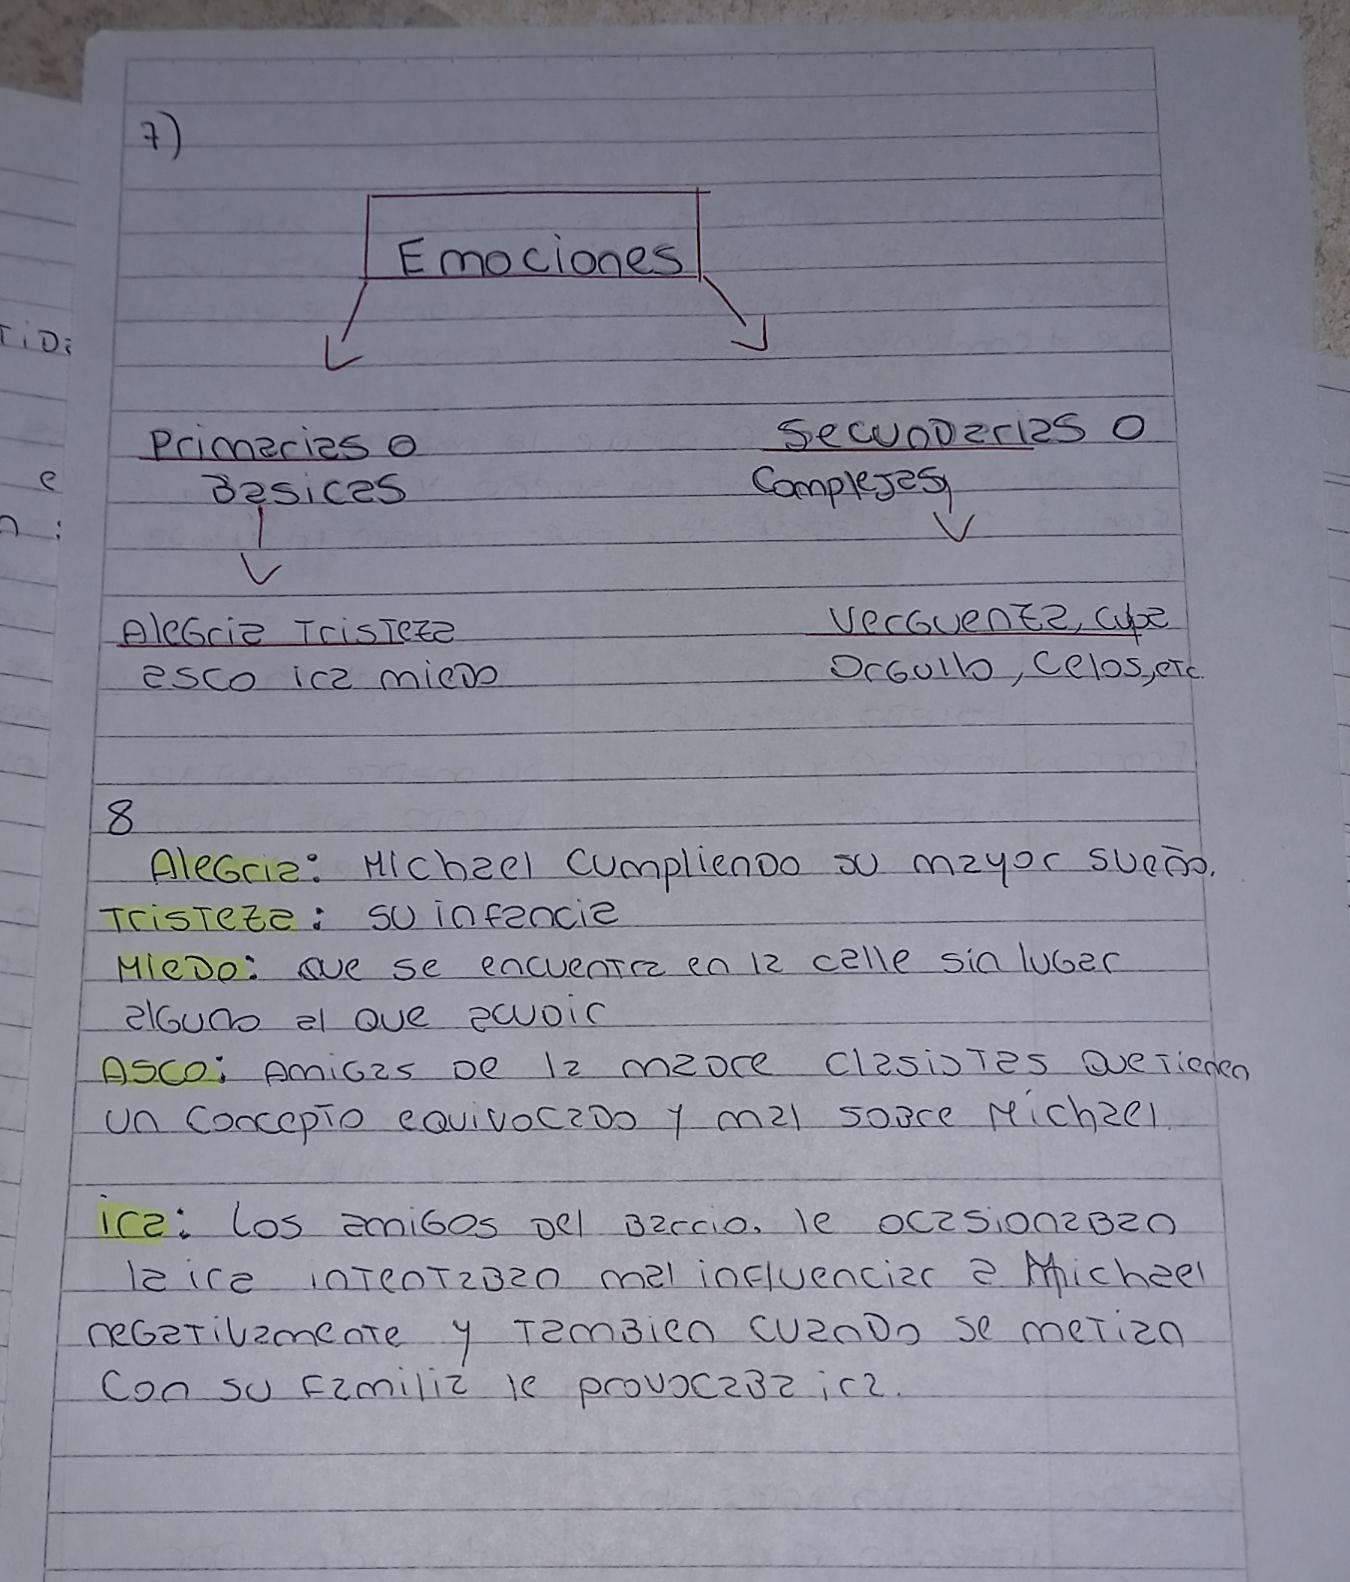 7)
Emociones
Primarias o
Basicas
Secundarias o
Complejas
Alegria Tristeza
asco ira miedo
Verguenza, culpa
Orgullo, celos, etc.
8
Alegria: Michael cumpliendo su mayor sueño.
Tristeza: su infancia
Miedo: que se encuentra en la calle sin lugar
alguno al que acudir
Asco: Amigas de la madre clasistas que tienen
un concepto equivocado y mal sobre Michael.
ira: Los amigos del Barrio. le ocasionaban
la ira intentaban mal influenciar a Michael
negativamente y tambien cuando se metian
con su familia le provocaba ira.
TiD:
e
n: